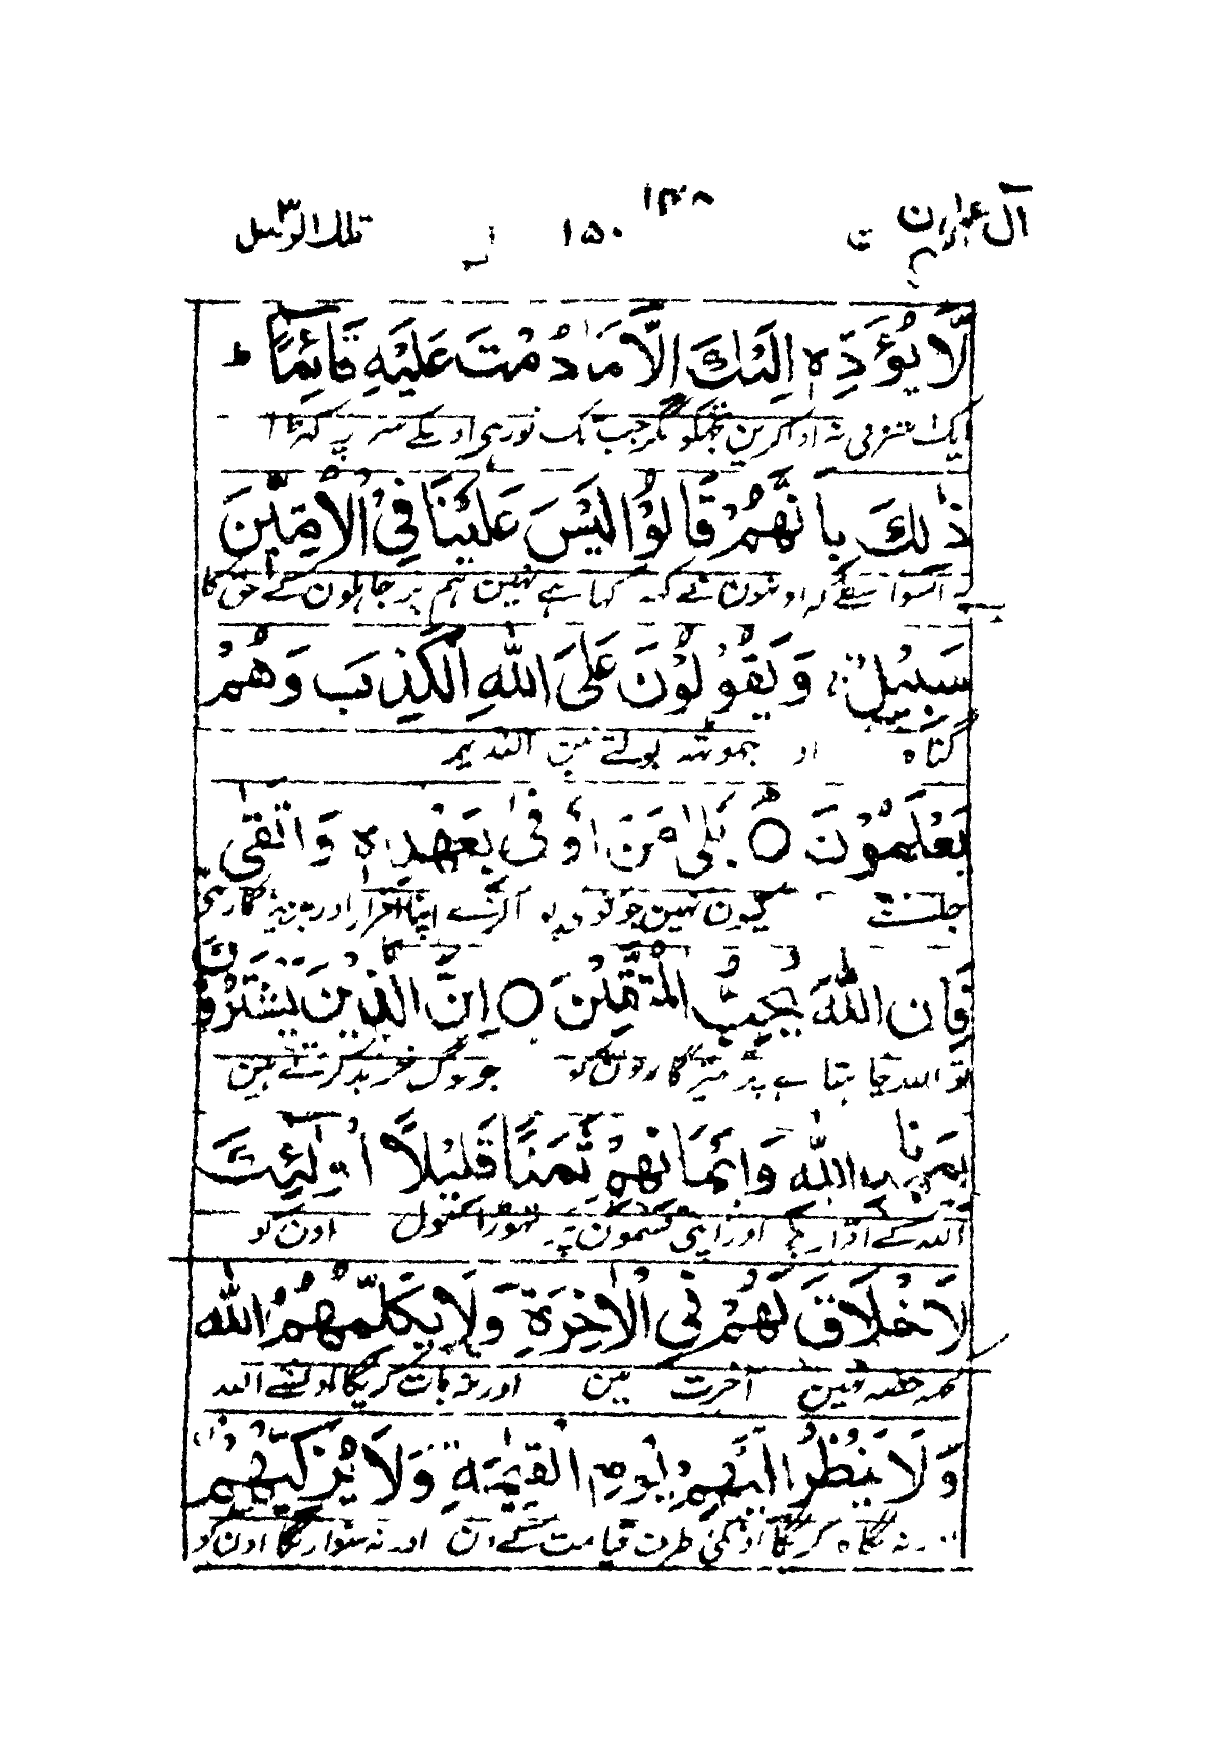 آل عمران ۳
۱۴۸
۱۵۰
تلك الرسل ۳
لَّا يُؤَدِّهٖ اِلَيْكَ اِلَّا مَا دُمْتَ عَلَيْهِ قَآئِمًا ؕ
ایک اشرفی نہ ادا کرین تجھکو مگر جب تک تو رہی اونکے سر پہ کہڑا
ذٰلِكَ بِاَنَّهُمْ قَالُوْا لَيْسَ عَلَيْنَا فِى الْاُمِّيّٖنَ
یہ اسواسطے کہ اونہون نے کہہ کہا ہے نہین ہم پر جاہلون کے حق کا
سَبِيْلٌ ۚ وَ يَقُوْلُوْنَ عَلَى اللّٰهِ الْكَذِبَ وَ هُمْ
گناہ او جھوٹھ بولتے ہین اللہ پر
يَعْلَمُوْنَ ○ بَلٰى مَنْ اَوْفٰى بِعَهْدِهٖ وَ اتَّقٰى
جانتے کیون نہین جو کوئی پورا کرے اپنا اقرار اور پرہیزگاری
فَاِنَّ اللّٰهَ يُحِبُّ الْمُتَّقِيْنَ ○ اِنَّ الَّذِيْنَ يَشْتَرُوْنَ
تو اللہ چاہتا ہے پرہیزگارون کو جو لوگ خرید کرتے ہین
بِعَهْدِ اللّٰهِ وَ اَيْمَانِهِمْ ثَمَنًا قَلِيْلًا اُولٰٓئِكَ
اللہ کے اقرار پر اور اپنی قسمون پر تھوڑا مول اون کو
لَا خَلَاقَ لَهُمْ فِى الْاٰخِرَةِ وَ لَا يُكَلِّمُهُمُ اللّٰهُ
کچھ حصہ نہین آخرت مین اور نہ بات کریگا اونسے اللہ
وَ لَا يَنْظُرُ اِلَيْهِمْ يَوْمَ الْقِيٰمَةِ وَ لَا يُزَكِّيْهِمْ
نہ نگاہ کریگا اونکی طرف قیامت کے دن اور نہ سنواریگا اون کو